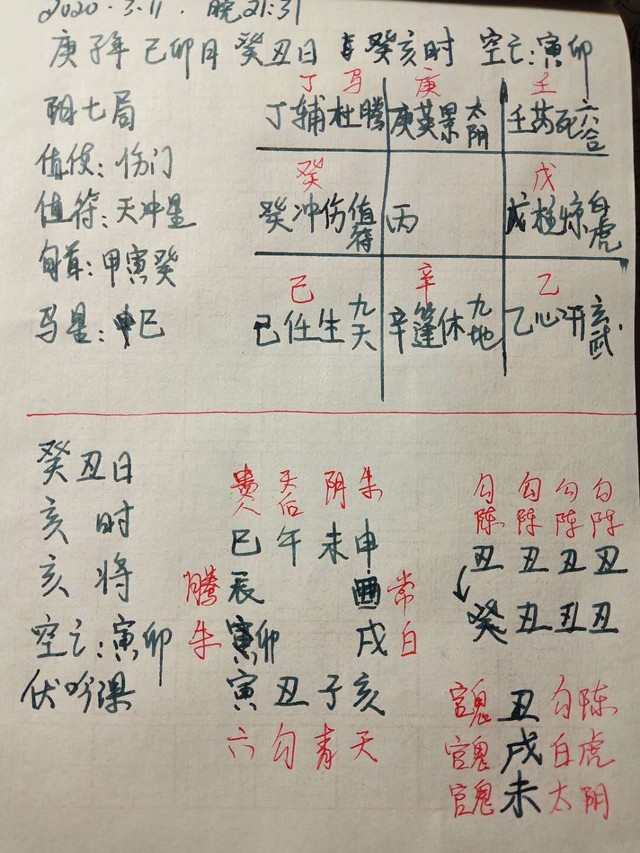 2020.3.11.晚21:31
庚子年 己卯月 癸丑日 癸亥时 空亡:寅卯
丁 马 庚 壬
阳七局 丁辅杜腾 庚英景太阴 壬芮死六合
值使:伤门
癸 戊
值符:天冲星 癸冲伤值符 丙 戊柱惊白虎
旬首:甲寅癸
己 辛 乙
马星:巳 己任生九天 辛蓬休九地 乙心开玄武
癸丑日
贵人 天后 阴 朱 勾陈 勾陈 勾陈 勾陈
亥 时 巳 午 未 申 丑 丑 丑 丑
亥 将 腾 辰 酉 常
癸 丑 丑 丑
空亡:寅卯 朱 卯 戌 白
伏吟课 寅 丑 子 亥
官鬼 丑 勾陈
六 勾 青 天
官鬼 戌 白虎
官鬼 未 太阴